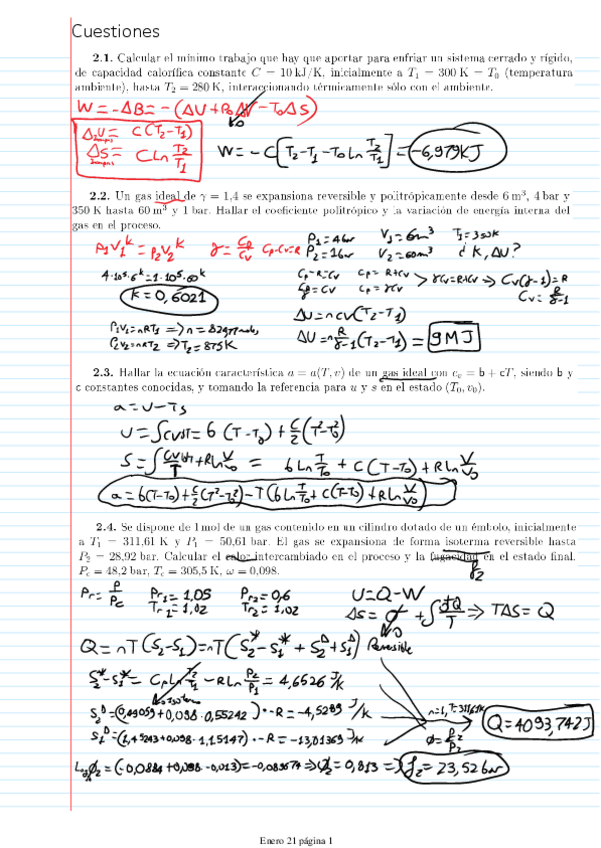 Cuestiones
2.1. Calcular el mínimo trabajo que hay que aportar para enfriar un sistema cerrado y rígido,
de capacidad calorífica constante C = 10 kJ/K, inicialmente a T₁ = 300 K = T₀ (temperatura
ambiente), hasta T₂ = 280 K, interaccionando térmicamente sólo con el ambiente.
W = -ΔB = -(ΔU + P₀ΔV - T₀ΔS)
ΔU = C(T₂-T₁)
ΔS = C Ln T₂/T₁
W = -C[T₂-T₁-T₀ Ln T₂/T₁] = -6,979KJ
2.2. Un gas ideal de γ = 1,4 se expansiona reversible y politrópicamente desde 6 m³, 4 bar y
350 K hasta 60 m³ y 1 bar. Hallar el coeficiente politrópico y la variación de energía interna del
gas en el proceso.
P₁=4bar V₁=6m³ T₁=350K
P₁V₁ᵏ = P₂V₂ᵏ γ = Cp/Cv Cp-Cv=R P₂=1bar V₂=60m³ ¿K, ΔU?
4·10⁵·6ᵏ=1·10⁵·60ᵏ Cp-R=Cv Cp=R+Cv > γCv=R+Cv => Cv(γ-1)=R
K=0,6021 Cp=γCv Cv=R/γ-1
ΔU=nCv(T₂-T₁)
P₁V₁=nRT₁ => n=
P₂V₂=nRT₂ => T₂=875K ΔU=n R/γ-1 (T₂-T₁) = 9MJ
2.3. Hallar la ecuación característica a = a(T, v) de un gas ideal con cᵥ = b + cT, siendo b y
c constantes conocidas, y tomando la referencia para u y s en el estado (T₀, v₀).
a=U-Ts
U=∫CvdT=b(T-T₀)+C/2(T²-T₀²)
S=∫CvdT/T+RLnV/V₀ = bLnT/T₀+C(T-T₀)+RLnV/V₀
a=b(T-T₀)+C/2(T²-T₀²)-T(bLnT/T₀+C(T-T₀)+RLnV/V₀)
2.4. Se dispone de 1 mol de un gas contenido en un cilindro dotado de un émbolo, inicialmente
a T₁ = 311,61 K y P₁ = 50,61 bar. El gas se expansiona de forma isoterma reversible hasta
P₂ = 28,92 bar. Calcular el calor intercambiado en el proceso y la fugacidad en el estado final.
P꜀ = 48,2 bar, T꜀ = 305,5 K, ω = 0,098. f₂
Pr=P/Pc Pr₁=1,05 Pr₂=0,6 U=Q-W
Tr₁=1,02 Tr₂=1,02 ΔS= + ∫dQ/T => TΔS=Q
Q=nT(S₂-S₁)=nT(S₂*-S₁*+S₂ᴰ+S₁ᴰ) Reversible
S₂*-S₁*=CpLnT₂/T₁-RLnP₂/P₁=4,6526 J/K
S₂ᴰ=(0,49059+0,098·0,55242)·-R=-4,5289 J/K n=1, T=311,61K Q=4093,742J
S₁ᴰ=(1,45243+0,098·1,15147)·-R=-13,01369 J/K φ=f₂/P₂
Logφ₂=(-0,0884+0,098·-0,013)=-0,089674=>φ₂=0,813=>f₂=23,52bar
Enero 21 página 1